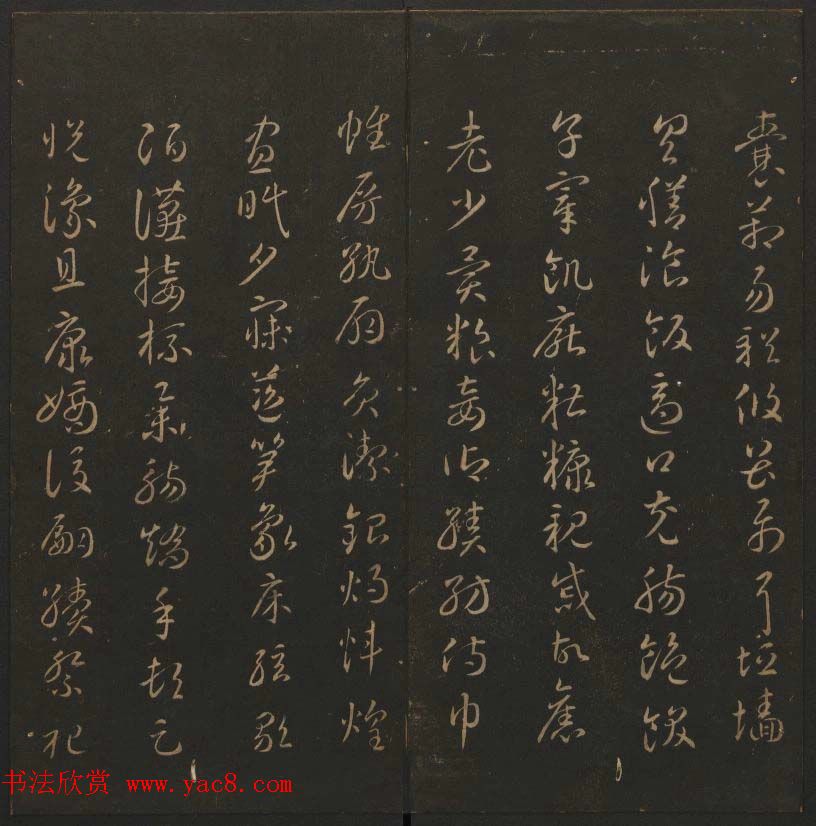 囊箱易輶攸畏屬耳垣墻
具膳飡飯適口充腸飽飫
烹宰飢厭糟糠親戚故舊
老少異糧妾御績紡侍巾
帷房紈扇圓潔銀燭煒煌
晝眠夕寐藍笋象床弦歌
酒讌接杯舉觴矯手頓足
悅豫且康嫡後嗣續祭祀
书法欣赏 www.yac8.com